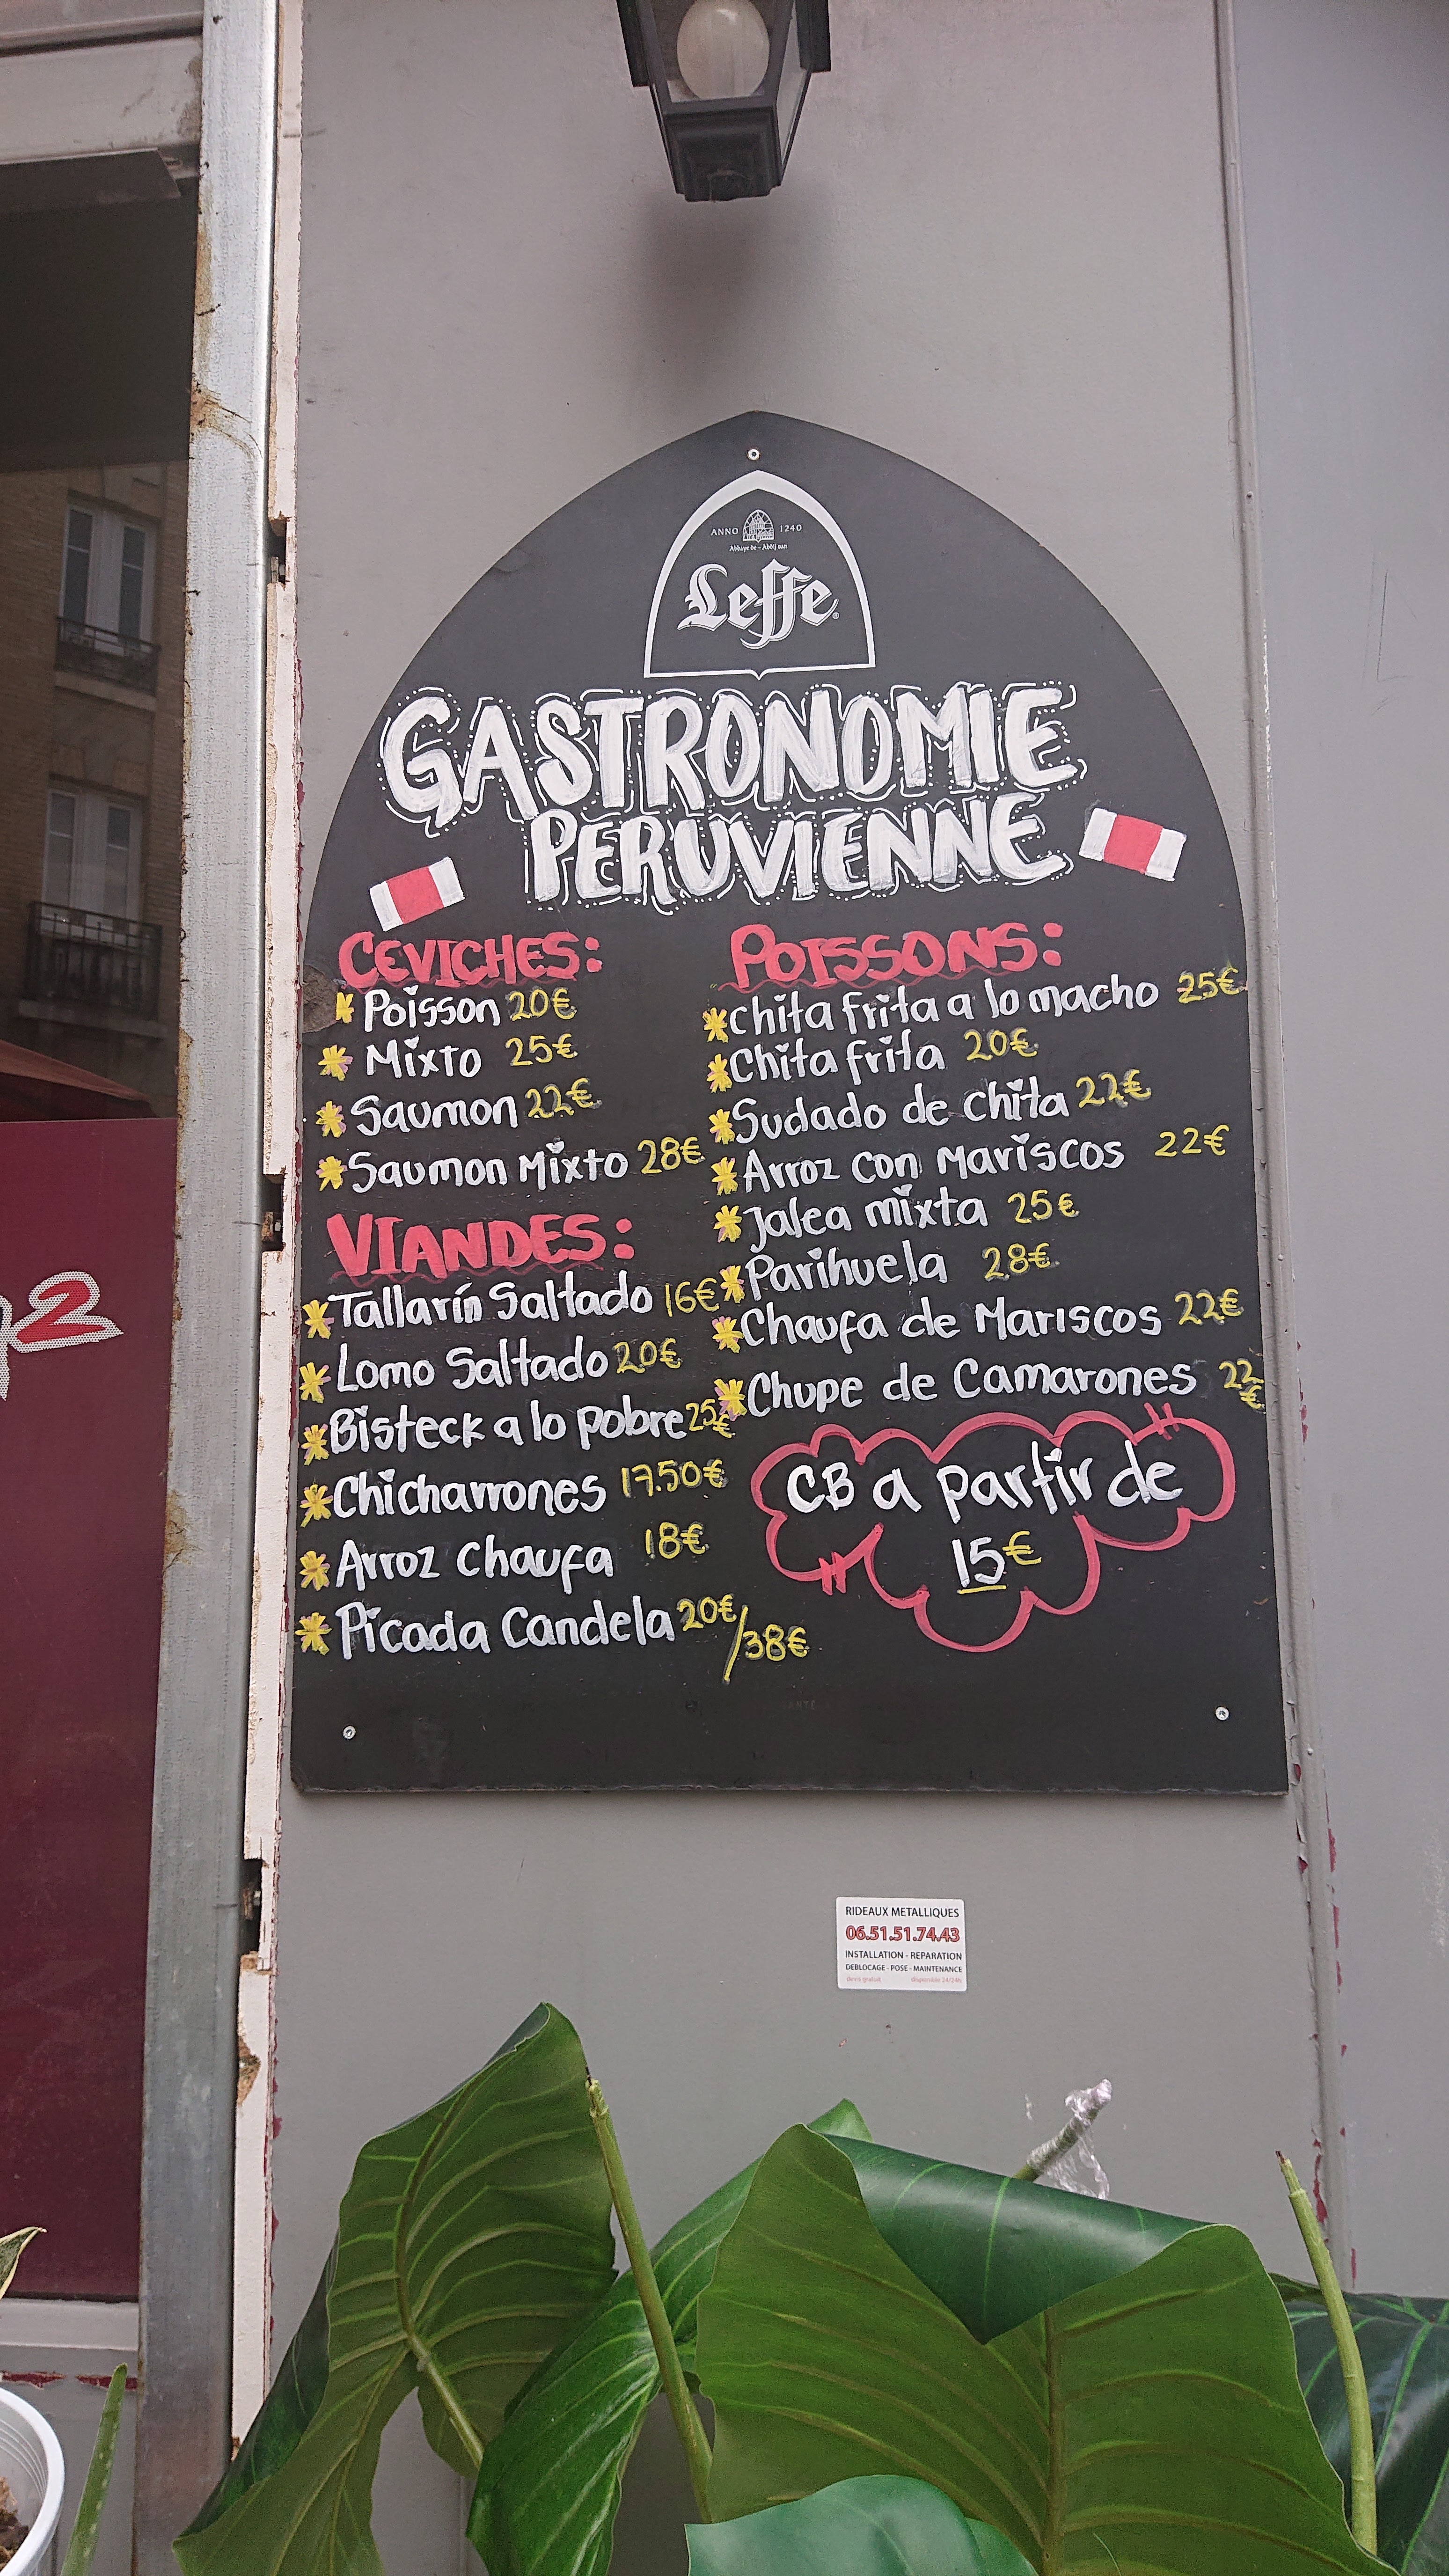 ANNO 1240
Abbaye de - Abdij van
Leffe
GASTRONOMIE
PERUVIENNE
CEVICHES:
Poisson 20€
Mixto 25€
Saumon 22€
Saumon Mixto 28€
VIANDES:
Tallarín Saltado 16€
Lomo Saltado 20€
Bisteck a lo pobre 25€
Chicharrones 17.50€
Arroz Chaufa 18€
Picada Candela 20€/38€
POISSONS:
Chita frita a lo macho 25€
Chita frita 20€
Sudado de chita 22€
Arroz con Mariscos 22€
Jalea mixta 25€
Parihuela 28€
Chaufa de Mariscos 22€
Chupe de Camarones 22€
CB a partir de
15€
RIDEAUX METALLIQUES
06.51.51.74.43
INSTALLATION - REPARATION
DEBLOCAGE - POSE - MAINTENANCE
devis gratuit disponible 24/24h